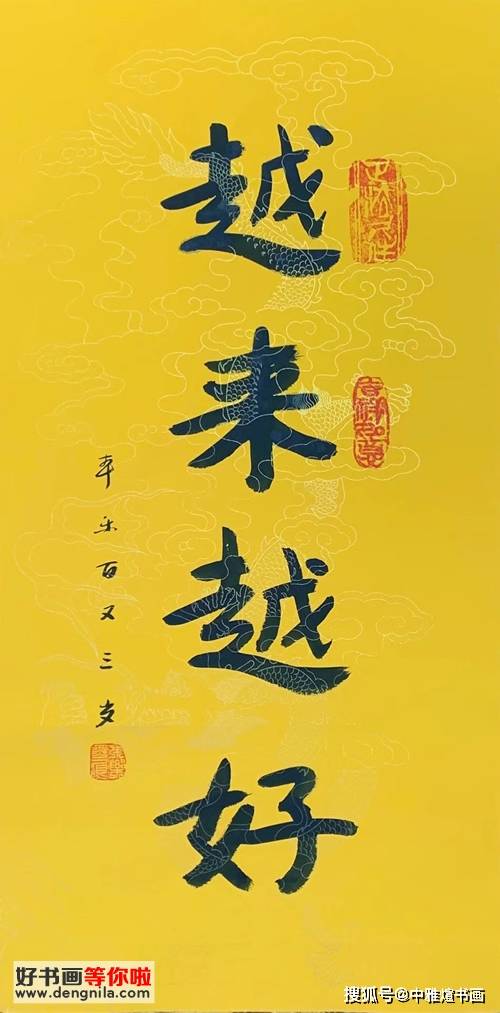 吉祥如意
越来越好
百又三岁
好书画等你啦
www.dengnila.com
搜狐号@中雅煊书画